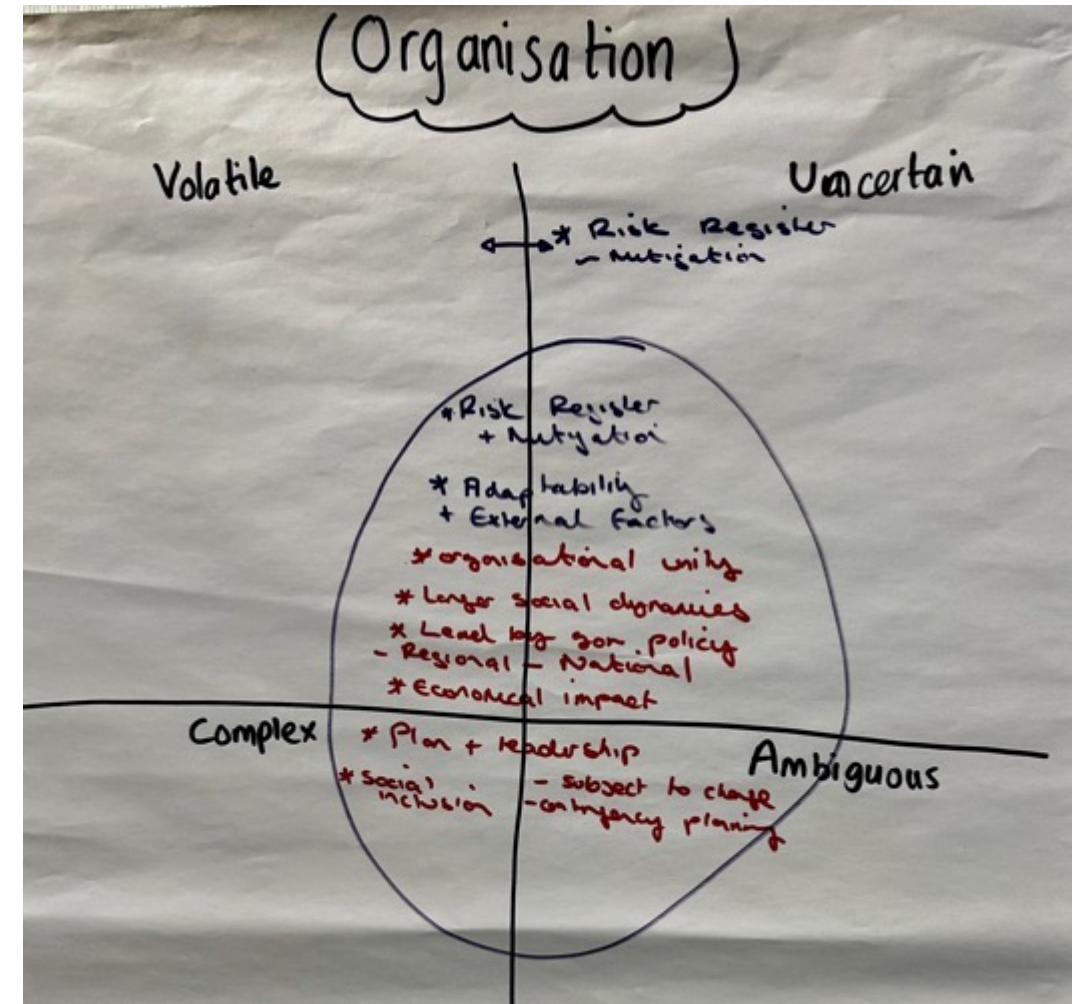 (Organisation)
Volatile
Uncertain
* Risk Register
- Mitigation
* Risk Register
+ Mitigation
* Adaptability
+ External Factors
* organisational unity
* Larger social dynamics
* Lead by gov. policy
- Regional - National
* Economical impact
Complex
* Plan + leadership
Ambiguous
* Social
inclusion
- subject to change
- contingency planning